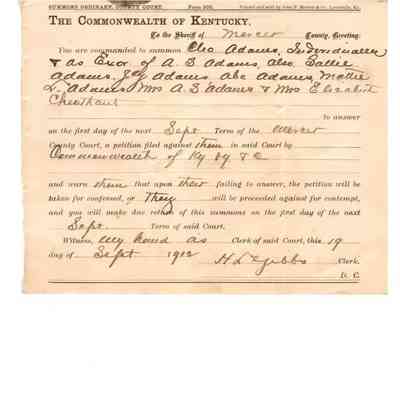 SUMMONS ORDINARY, COUNTY COURT. Form 503.
THE COMMONWEALTH OF KENTUCKY,
To the Sheriff of Mercer County, Greeting:
You are commanded to summon Cleo Adams, Individually
& as Exor of A. B Adams, also Sallie
Adams, Adams, Abe Adams Mattie
L. Adams, Mrs A. B Adams & Mrs Elizabeth
Cheatham
to answer
on the first day of the next Sept Term of the Mercer
County Court, a petition filed against them in said Court by
Commonwealth of Ky by & C
and warn them that upon their failing to answer, the petition will be
taken for confessed, or They will be proceeded against for contempt,
and you will make due return of this summons on the first day of the next
Sept. Term of said Court.
Witness, My hand as Clerk of said Court, this 19
day of Sept 1912 H L Gibbs Clerk.
D. C.